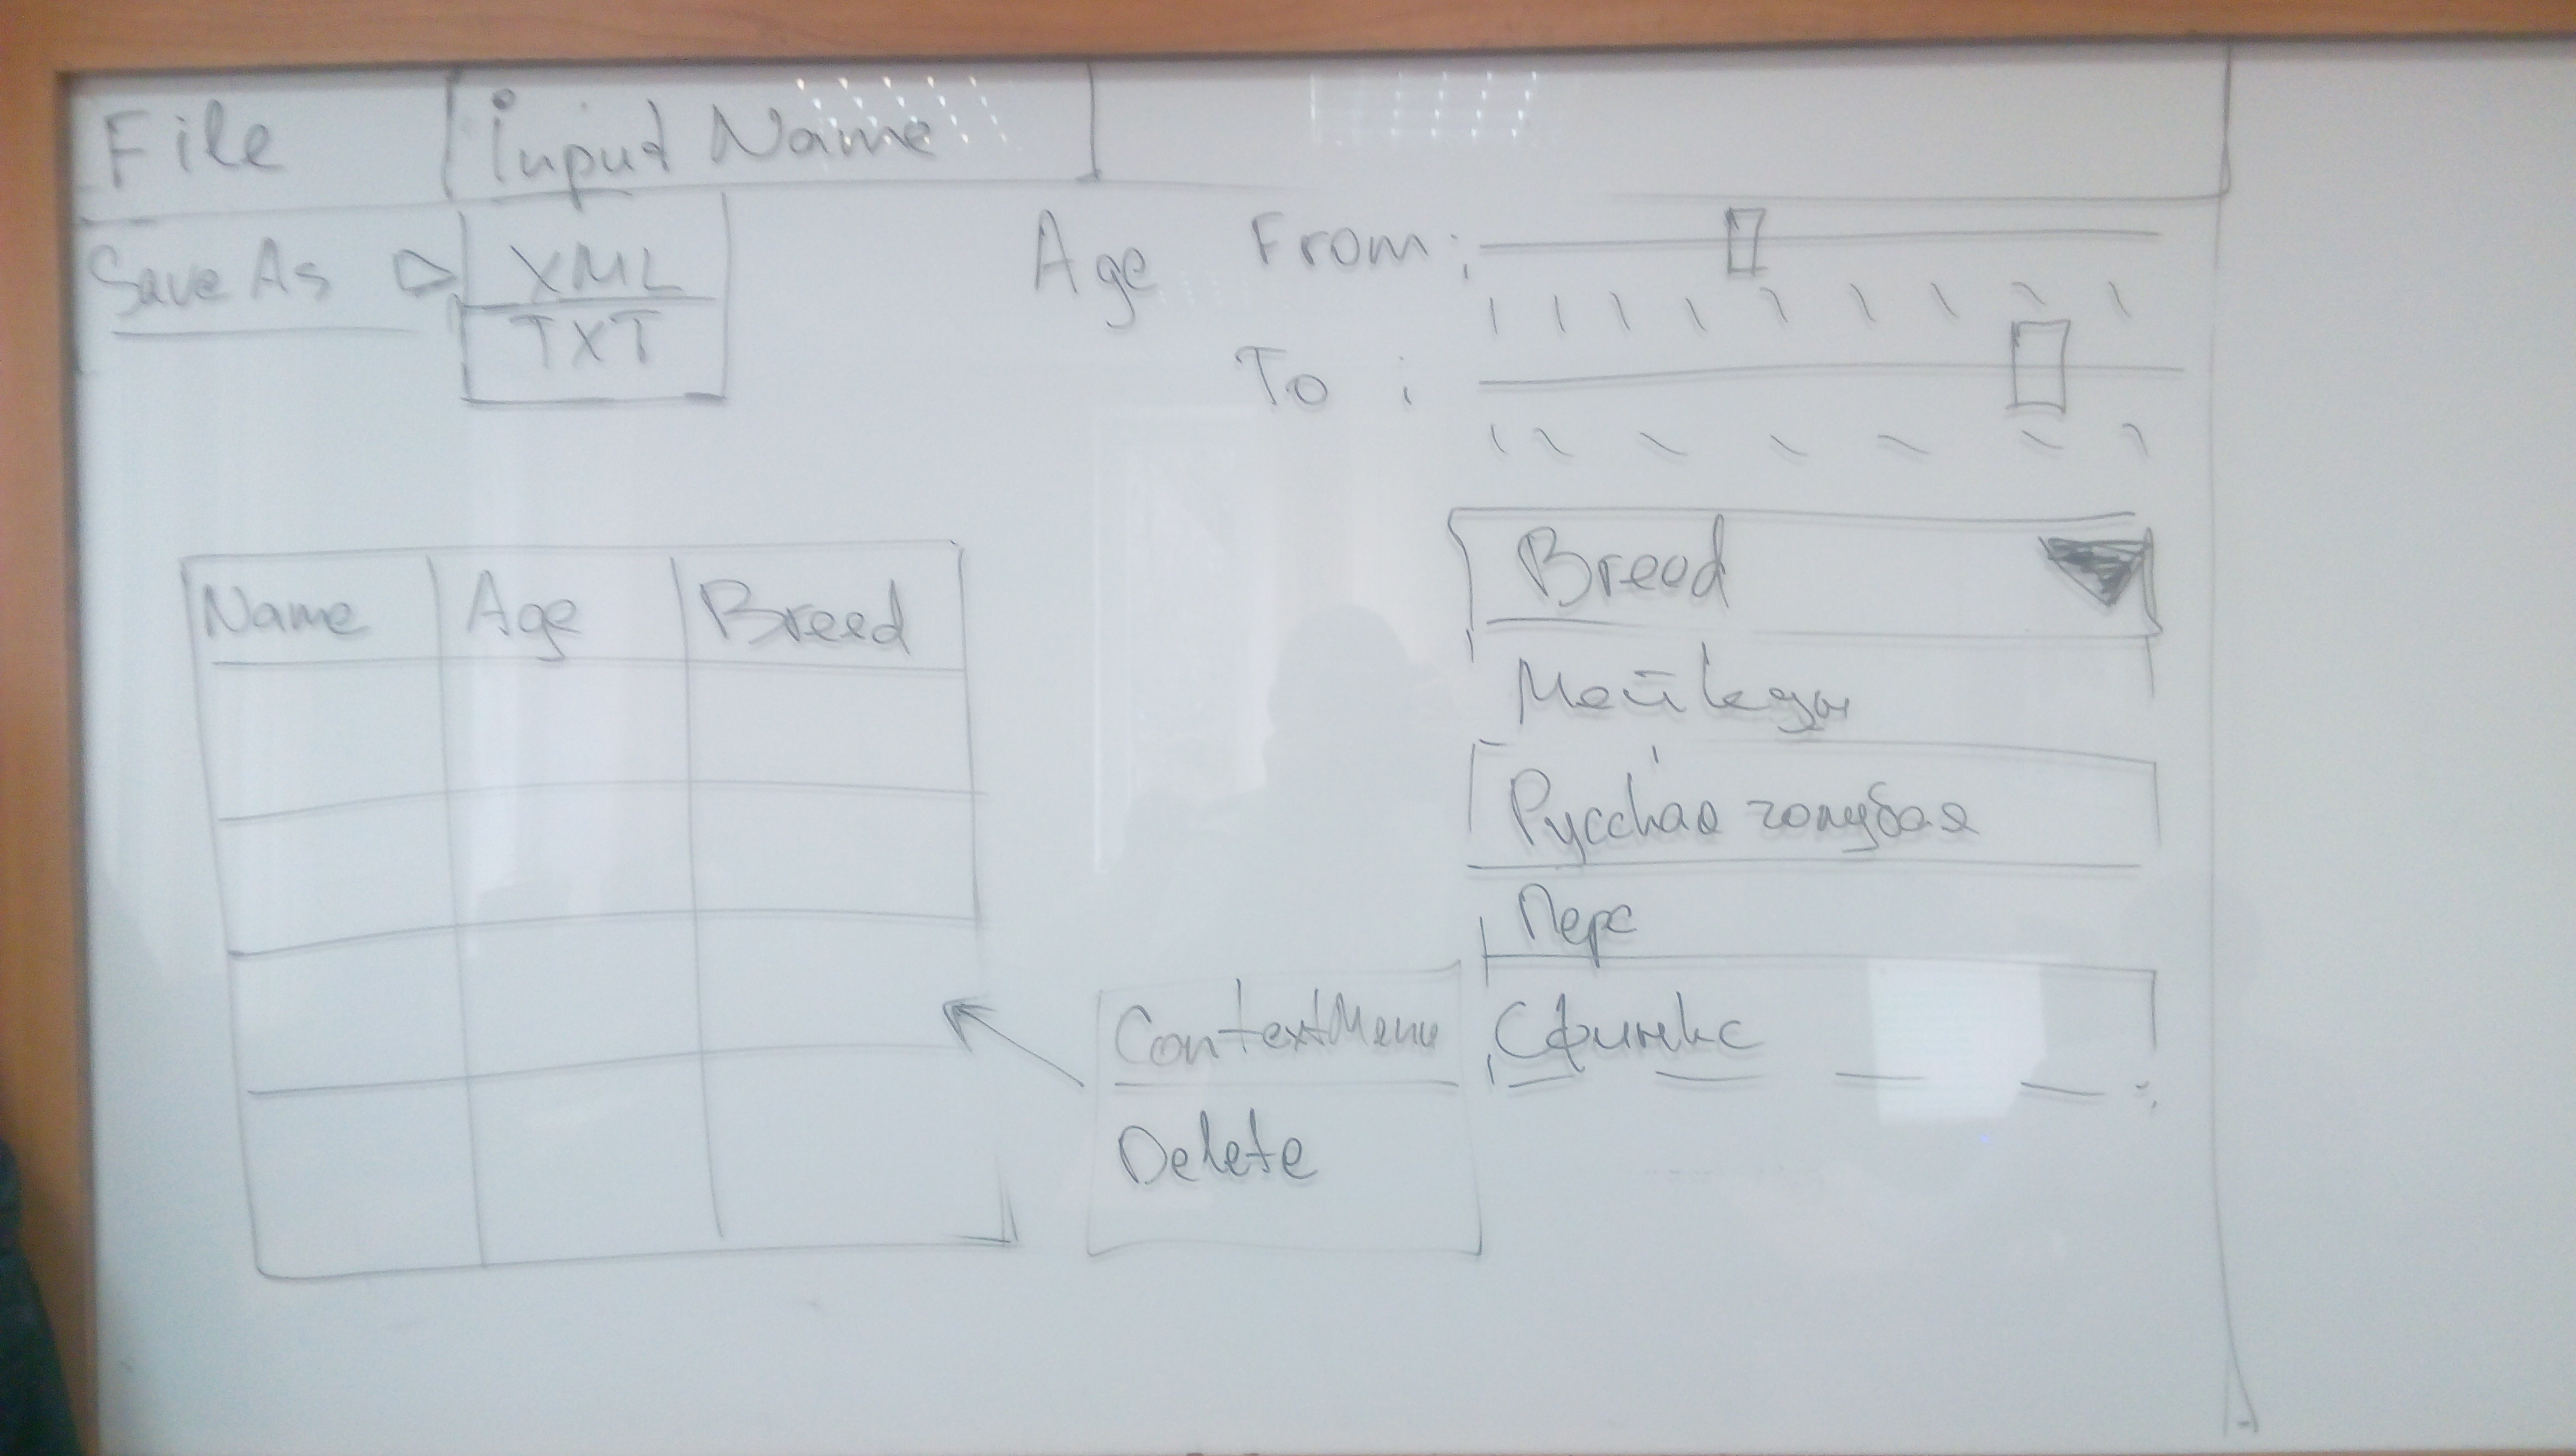 File
Input Name
Save As
XML
TXT
Age From:
To :
Name Age Breed
Breed
Мейкун
Русская голубая
Перс
Сфинкс
ContextMenu
Delete